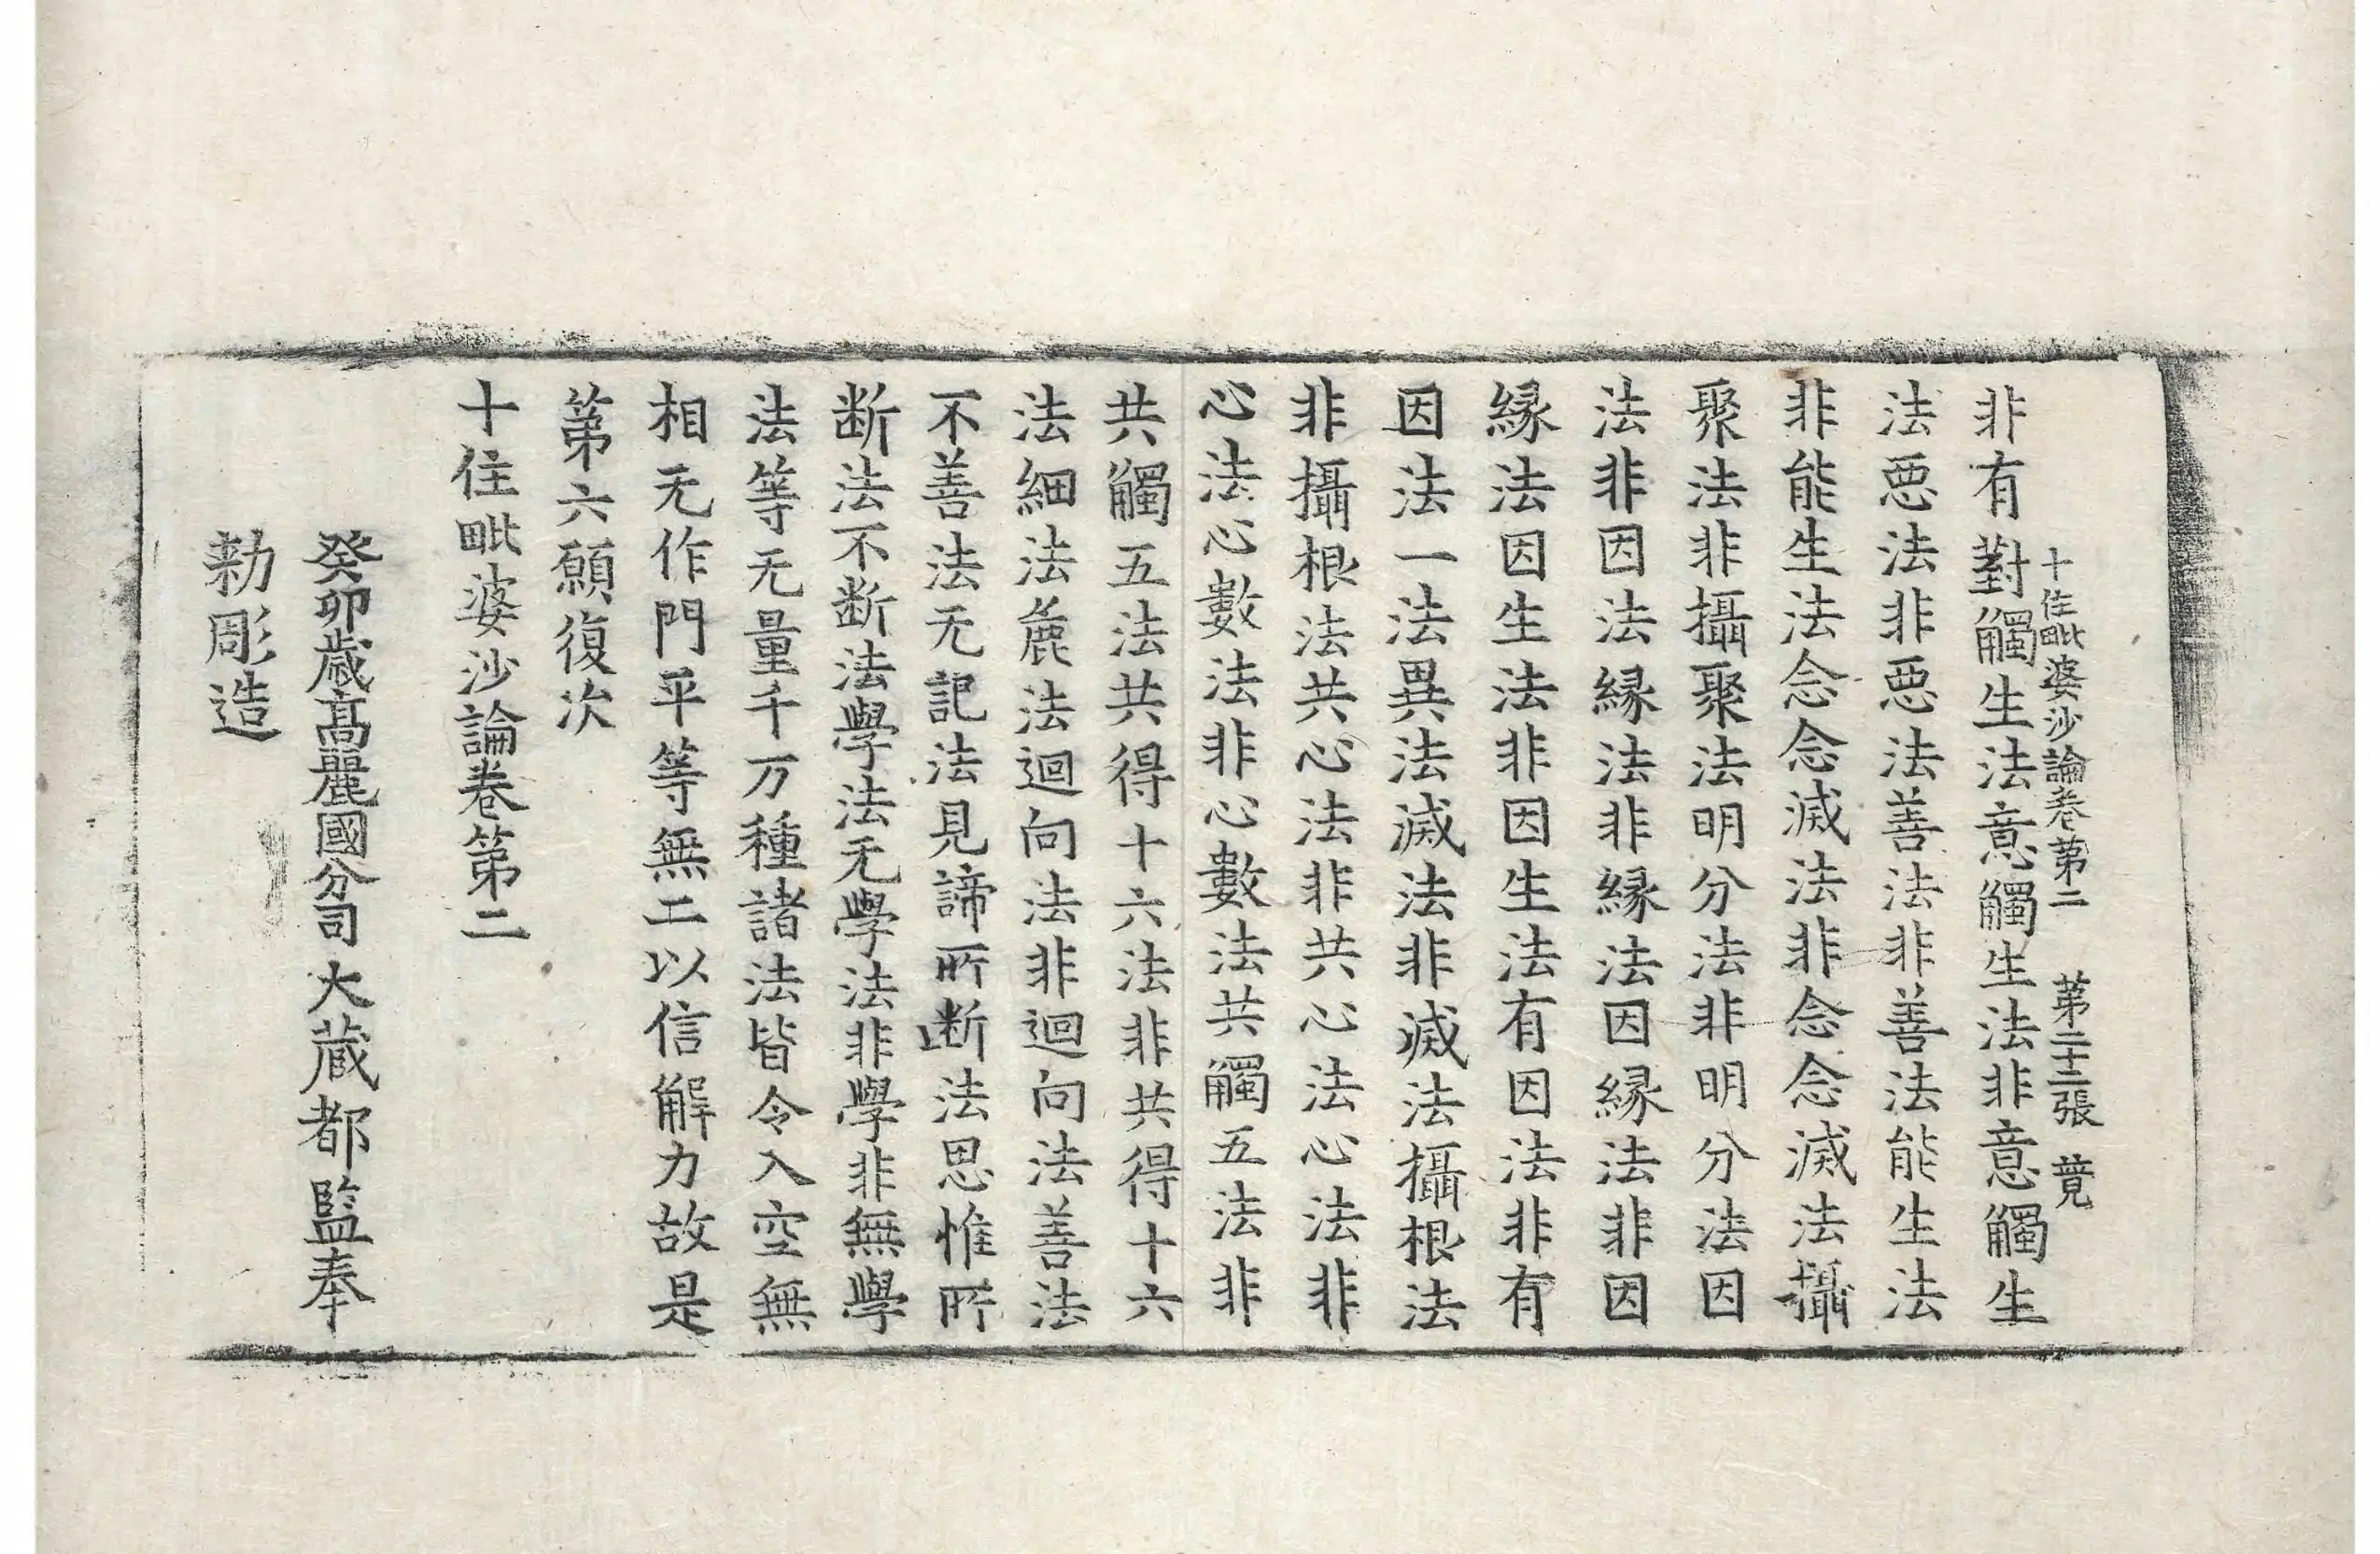 十住毗婆沙論卷第二　第二十二張　竟
非有對觸生法意觸生法非意觸生
法惡法非惡法善法非善法能生法
非能生法念念滅法非念念滅法攝
聚法非攝聚法明分法非明分法因
法非因法緣法非緣法因緣法非因
緣法因生法非因生法有因法非有
因法一法異法滅法非滅法攝根法
非攝根法共心法非共心法心法非
心法心數法非心數法共觸五法非
共觸五法共得十六法非共得十六
法細法麁法迴向法非迴向法善法
不善法无記法見諦所断法思惟所
断法不断法學法无學法非學非無學
法等无量千万種諸法皆令入空無
相无作門平等無二以信解力故是
第六願復次
十住毗婆沙論卷第二
癸卯歳高麗國分司大藏都監奉
勑彫造